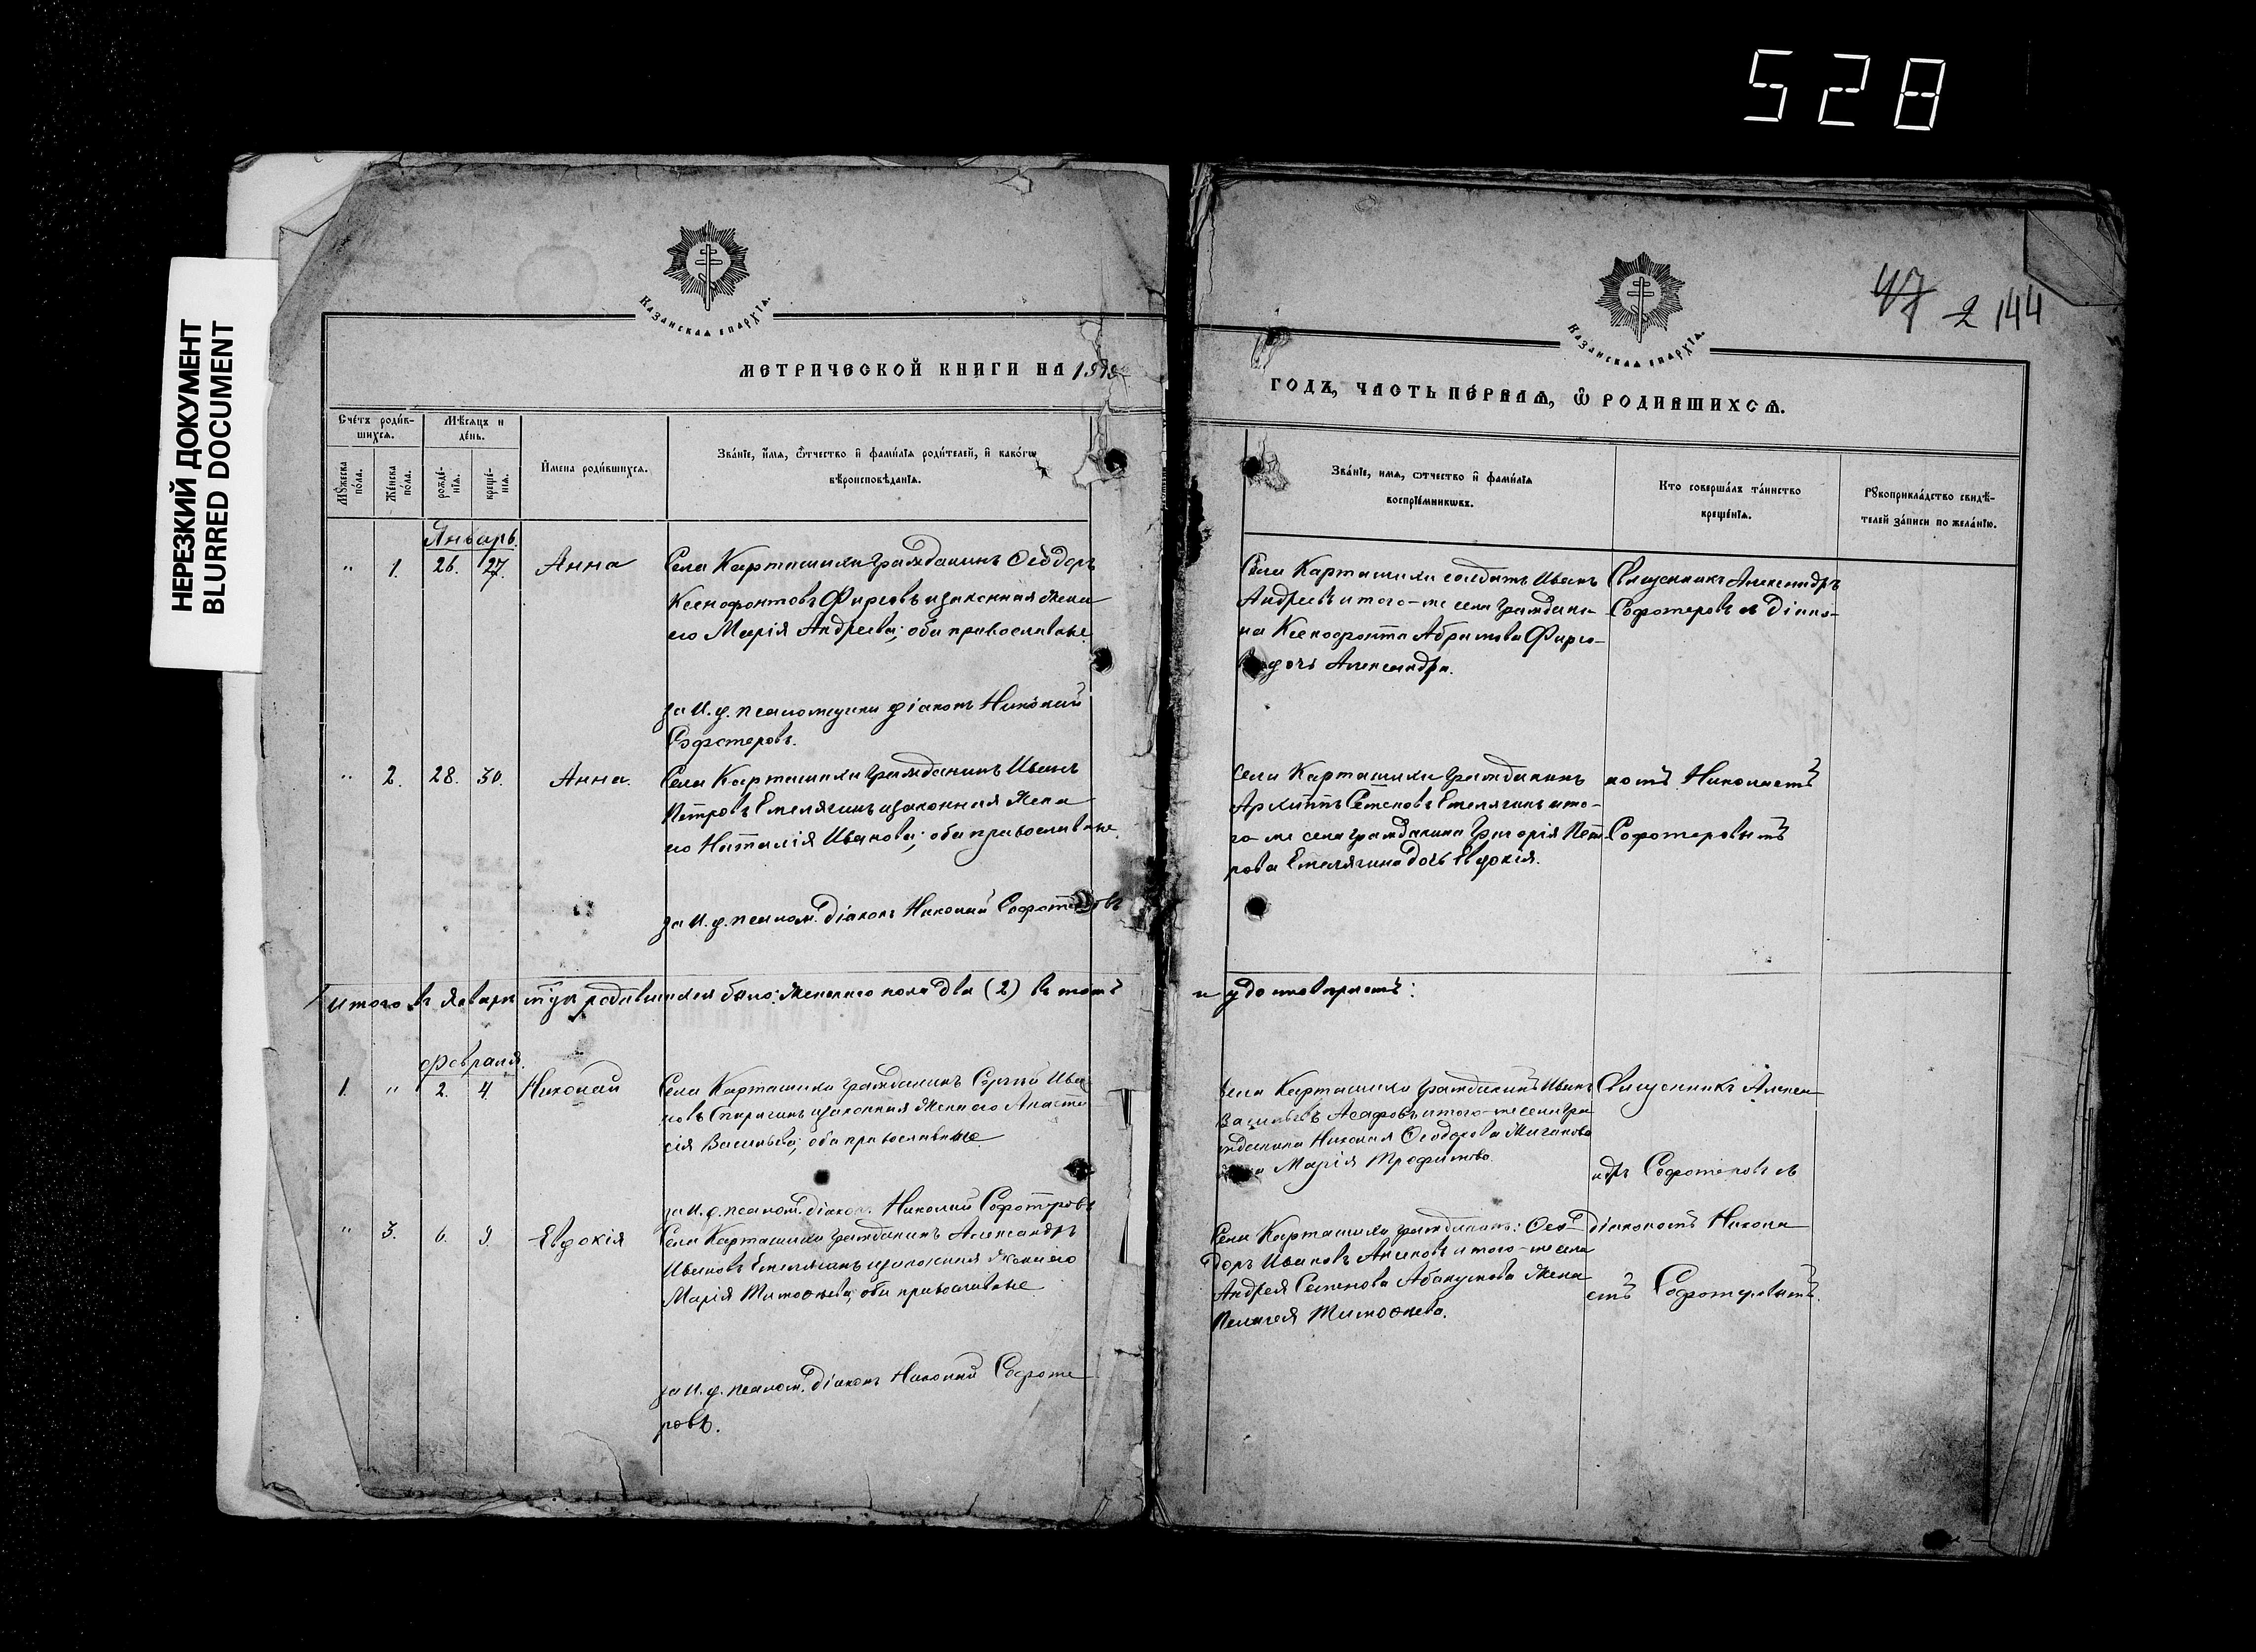 528
НЕРЕЗКИЙ ДОКУМЕНТ
BLURRED DOCUMENT
Казанская епархїѧ.
Казанская епархїѧ.
47 2 144
МЕТРИЧЕСКОЙ КНИГИ НА
ГОДЪ, ЧАСТЬ ПЕРВАѦ, Ѽ РОДИВШИХСѦ.
Счётъ роди́в-
шихсѧ.
Мѣ́сѧцъ и
де́нь.
Мꙋ́жеска
по́ла.
Же́нска
по́ла.
рожде́-
нїѧ.
креще́-
нїѧ.
И҆мена роди́вшихсѧ.
Зва́нїе, и҆́мѧ, ѻ҆́тчество и҆ фами́лїѧ роди́телей, и҆ како́гѡ
вѣроисповѣ́данїѧ.
Зва́нїе, имѧ, ѻтчество и҆ фами́лїѧ
воспрїе́мникѡвъ.
Кто соверша́лъ та́инство
креще́нїѧ.
Рꙋкоприкла́дство свидѣ́-
телей за́писи по жела́нїю.
Январь.
" 1. 26. 27. Анна
Села Карташихи гражданинъ Ѳеодоръ
Ксенофонтовъ Фирсовъ и законная жена
его Марія Андреева; оба православные.
за и. ф. псаломщика діаконъ Николай
Софотеровъ.
Села Карташихи солдатъ Иванъ
Андреевъ и того-же села граждани-
на Ксенофонта Абрамова Фирсо-
дочь Александра.
Священникъ Александръ
Софотеровъ съ діако-
" 2. 28. 30. Анна.
Села Карташихи гражданинъ Иванъ
Петровъ Емелягинъ и законная жена
его Наталія Иванова; оба православные.
за и. ф. псалом. діаконъ Николай Софотеровъ
Села Карташихи гражданинъ
Архиппъ Семеновъ Емелягинъ и то-
го-же села гражданина Григорія Пет-
рова Емелягина дочь Евдокія.
номъ Николаемъ
Софотеровымъ
Итого въ январѣ м҃цѣ родившихся было: женскаго пола два (2) въ томъ
и удостовѣряемъ:
Февраля.
1. " 2. 4. Николай
Села Карташихи гражданинъ Сергѣй Ива-
новъ и законная жена его Анаста-
сія Васильева; оба православные
за и. ф. псалом. діакон. Николай Софотеровъ
Села Карташихи гражданинъ Иванъ
Васильевъ Асафовъ и того-же села гра-
жданина Николая Ѳеодорова
жена Марія Трофимова.
Священникъ Алекса-
ндръ Софотеровъ съ
" 3. 6. 9. Евдокія
Села Карташихи гражданинъ Александръ
Ивановъ Емелягинъ и законная жена его
Марія Тимоѳеева; оба православные
за и. ф. псалом. діаконъ Николай Софоте
ровъ.
Села Карташихи гражданинъ: Ѳео-
доръ Ивановъ и того-же села
Андрея Семенова Абакумова жена
Пелагея Тимоѳеева.
діакономъ Никола-
емъ Софотеровымъ.